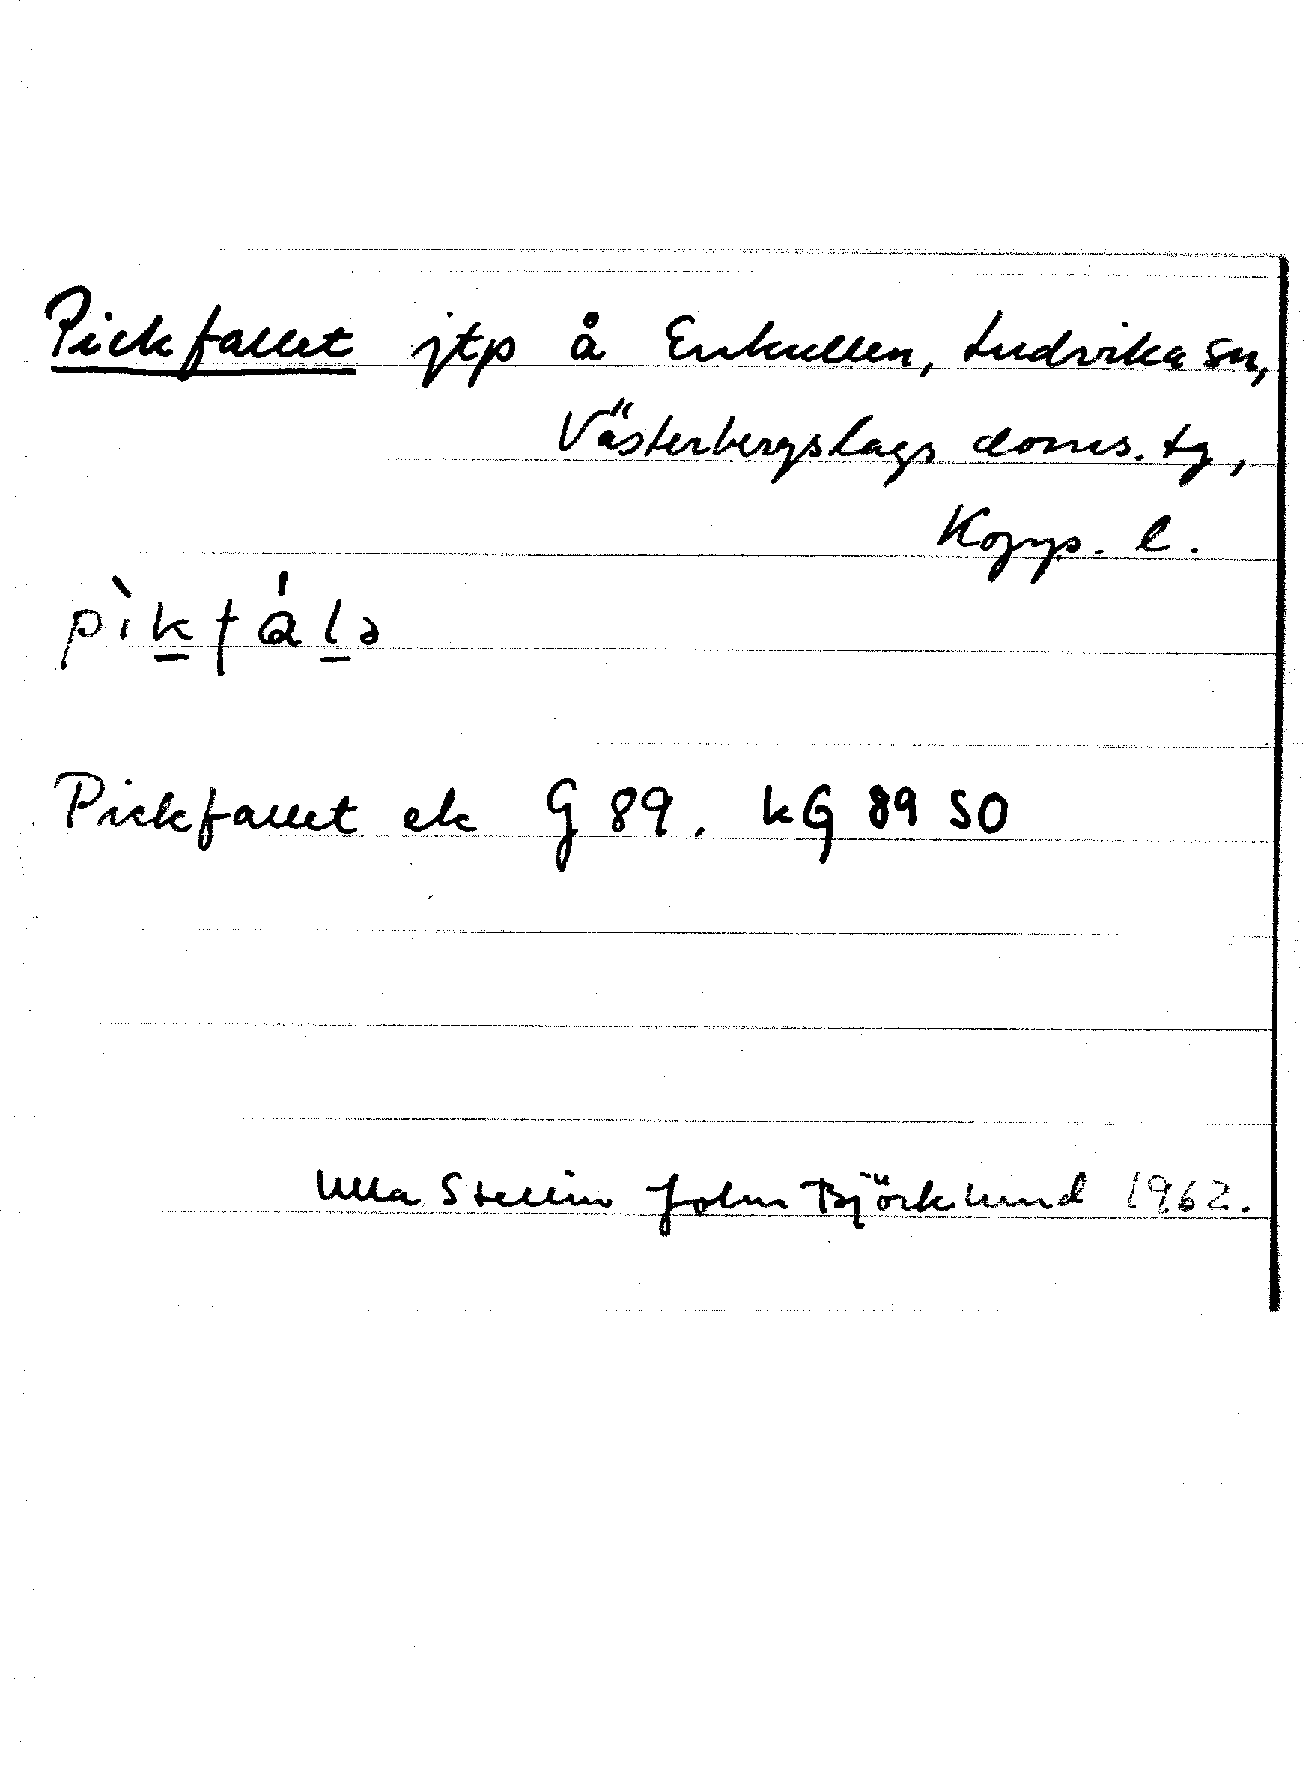 Pickfallet jtp å Enkullen, Ludvika sn,
Västerbergslags doms. tg,
Kopp. l.
pìkfálə
Pickfallet ek G 89. kG 89 SO
Ulla Stellin John Björklund 1962.